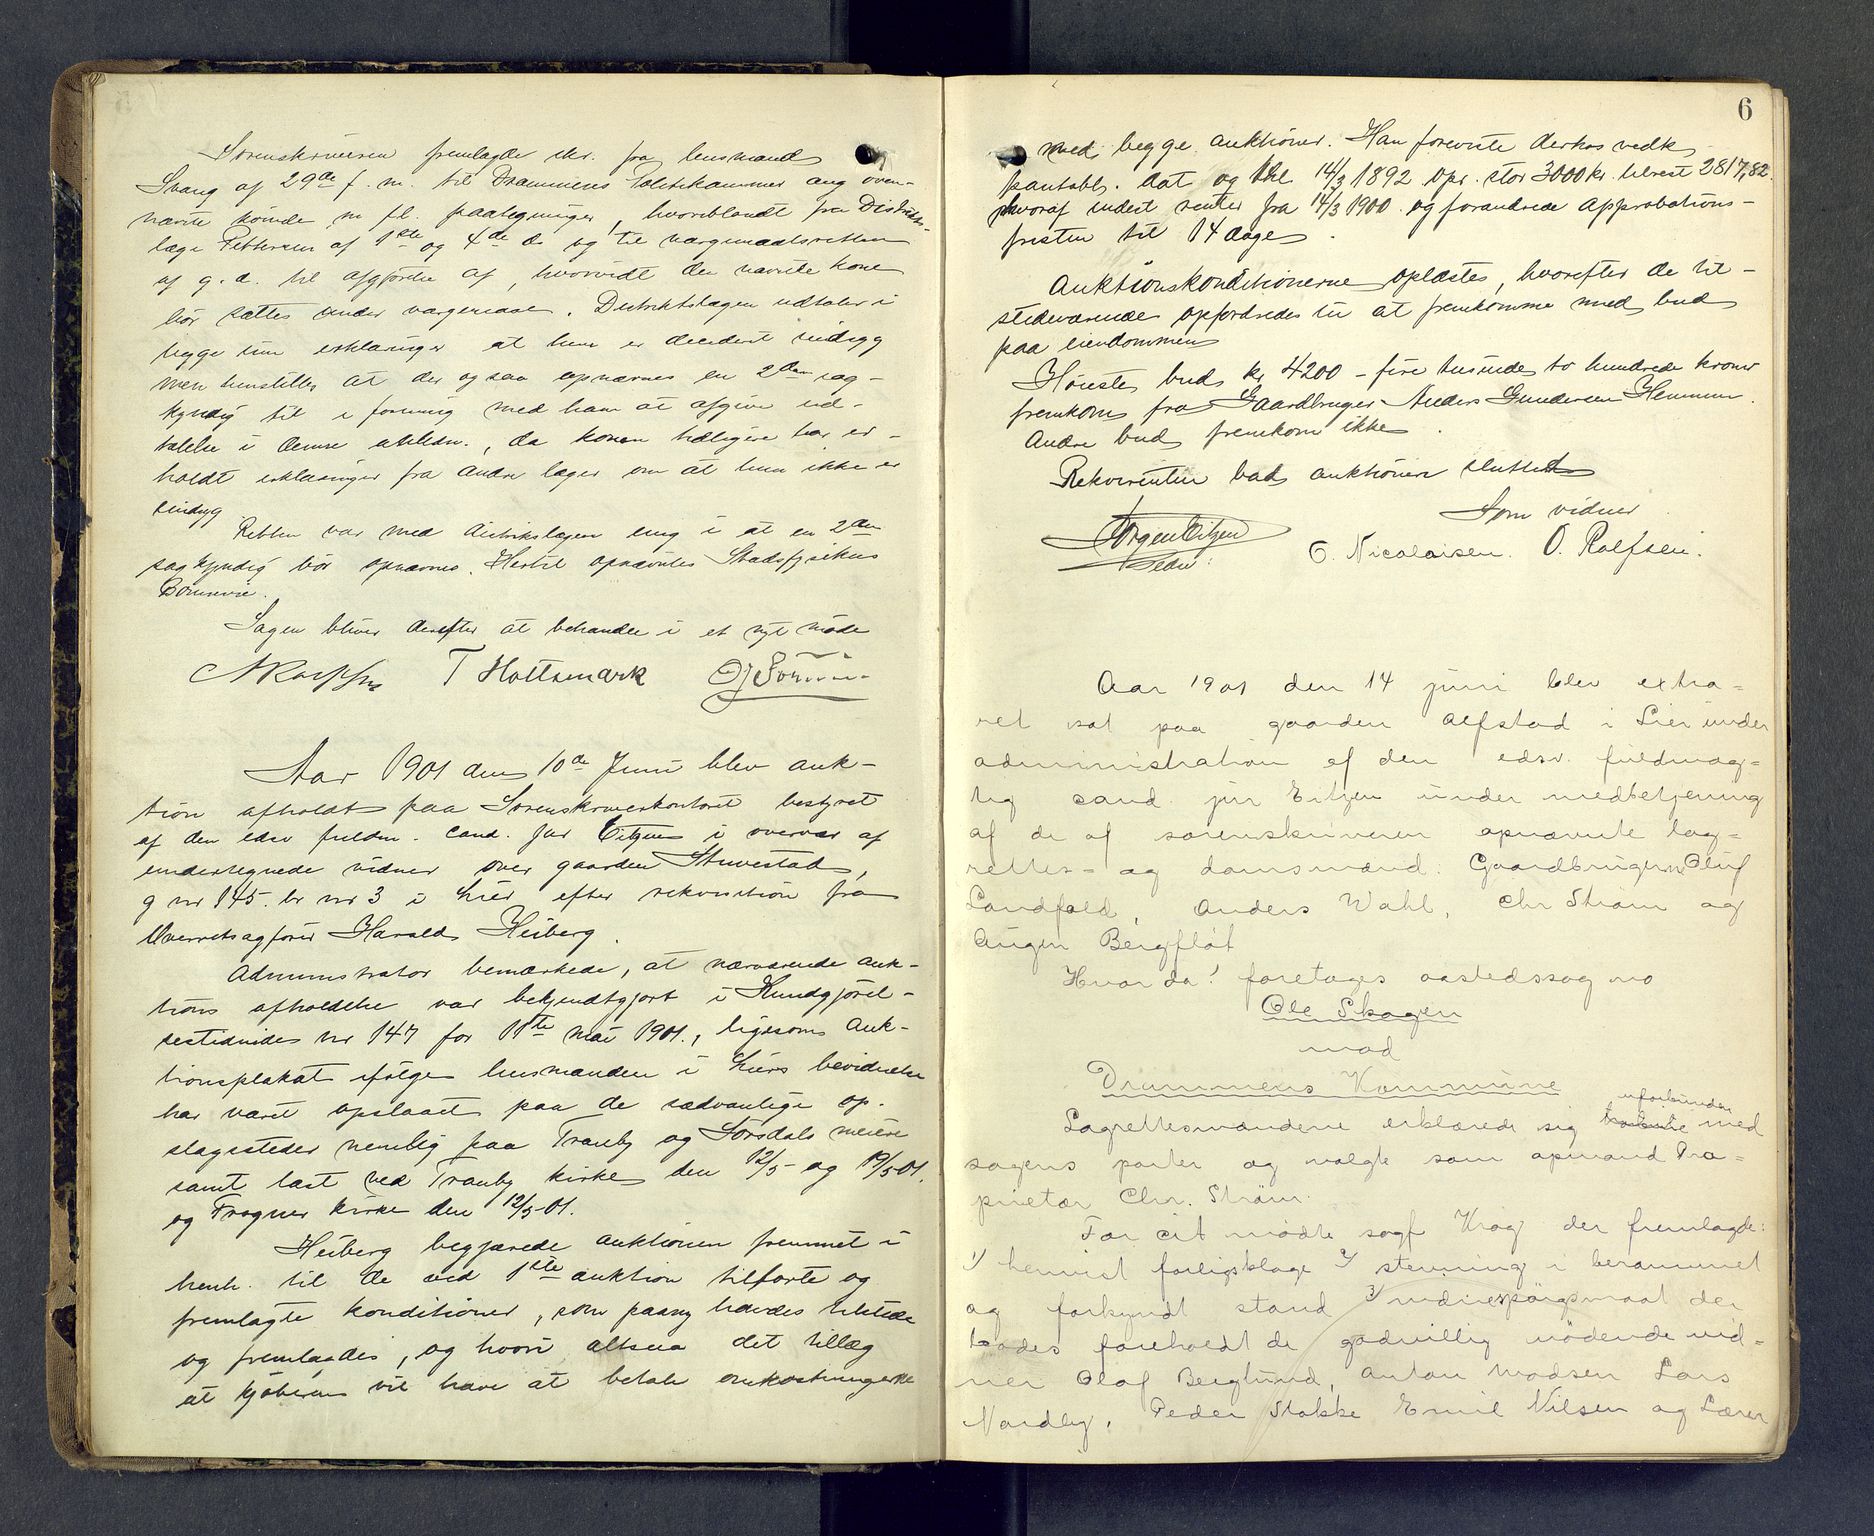 Sorenskriveren fremlagde skr. fra lensmand
Svang af 29de f. m. til Drammens Politikammer ang oven-
nævnte kvinde m fl. paategninger, hvoriblandt fra Distrikts-
læge Pettersen af 1ste og 4de ds og til værgemaalsretten
af g. d. til afgjørelse af, hvorvidt den nævnte kone
bør sættes under værgemaal. Distriktslægen udtaler i
begge sine erklæringer at hun er decideret sindsyg
men henstiller at der ogsaa opnævnes en 2den sag-
kyndig til i forening med ham at afgive ud-
talelse i denne anledn., da konen tidligere har er-
holdt erklæringer fra andre læger om at hun ikke er
sindsyg.
Retten var med distriktslægen enig i at en 2den
sagkyndig bør opnævnes. Hertil opnævntes Stadsfysikus
Sagen bliver derefter at behandle i et nyt møde
T Holtsmark
Aar 1901 den 10de Juni blev auk-
tion afholdt paa Sorenskriverkontoret bestyret
af den edsv fuldm. cand. jur Eitzen i overvær af
undertegnede vidner over gaarden Stuvestad,
g nr 145 br nr 3 i Lier efter rekvisition fra
Overretsagfører Harald Heiberg.
Administrator bemærkede, at nærværende auk-
tions afholdelse var bekjendtgjort i Kundgjørel-
sestidende nr 147 for 11te mai 1901, ligesom auk-
tionsplakat ifølge lensmanden i Liers bevidnelse
har været opslaaet paa de sædvanlige op-
slagssteder nemlig paa Tranby og Sørsdals meieri
samt læst ved Tranby kirke den 12/5 og 19/5 01.
og Frogner kirke den 12/5 01.
Heiberg begjærede auktionen fremmet i
henh. til de ved 1ste auktion tilførte og
fremlagte konditioner, som paany havdes tilstede
og fremlagdes, og hvori altsaa det tillæg
at kjøberen vil have at betale omkostningerne
6
med begge auktioner. Han foreviste derhos vedk
pantobl. dat og thl 14/3 1892 opr. stor 3000 kr. tilrest 2817,82.
hvoraf indest renter fra 14/3 1900 og forandrede approbations-
fristen til 14 dage.
Auktionskonditionerne oplæstes, hvorefter de til-
stedeværende opfordredes til at fremkomme med bud
paa eiendommen
Høieste bud kr 4200 - fire tusinde to hundrede kroner
fremkom fra Gaardbruger Anders Gundersen Hennum.
Andre bud fremkom ikke.
Rekvirenten bad auktionen sluttet
Som vidner
Jørgen Eitzen
C. Nicolaisen. O. Rolfsen.
Aar 1901 den 14 juni blev extra-
ret sat paa gaarden Alfstad i Lier under
administration af den edsv. fuldmæg-
tig cand. jur Eitzen under medbetjening
af de af sorenskriveren opnævnte lag-
rettes- og domsmænd: Gaardbrugerne Oluf
Landfald, Anders Wahl, Chr Strøm og
Augen Bergfløt
Hvor da! foretages aastedssag no
Ole Skogen
mod
Drammens Kommune
uforbunden
Lagrettesmændene erklærede sig med
sagens parter og valgte som opmand Pro-
prietær Chr. Strøm.
For cit mødte sagf Krog der fremlagde:
1/ henvist forligsklage 2/ stevning i berammet
og forkyndt stand 3/ vidnespørgsmaal der
bades foreholdt de godvillig mødende vid-
ner Olaf Berglund, Anton Madsen Lars
Nordby, Peder Stokke Emil Nilsen og Lærer